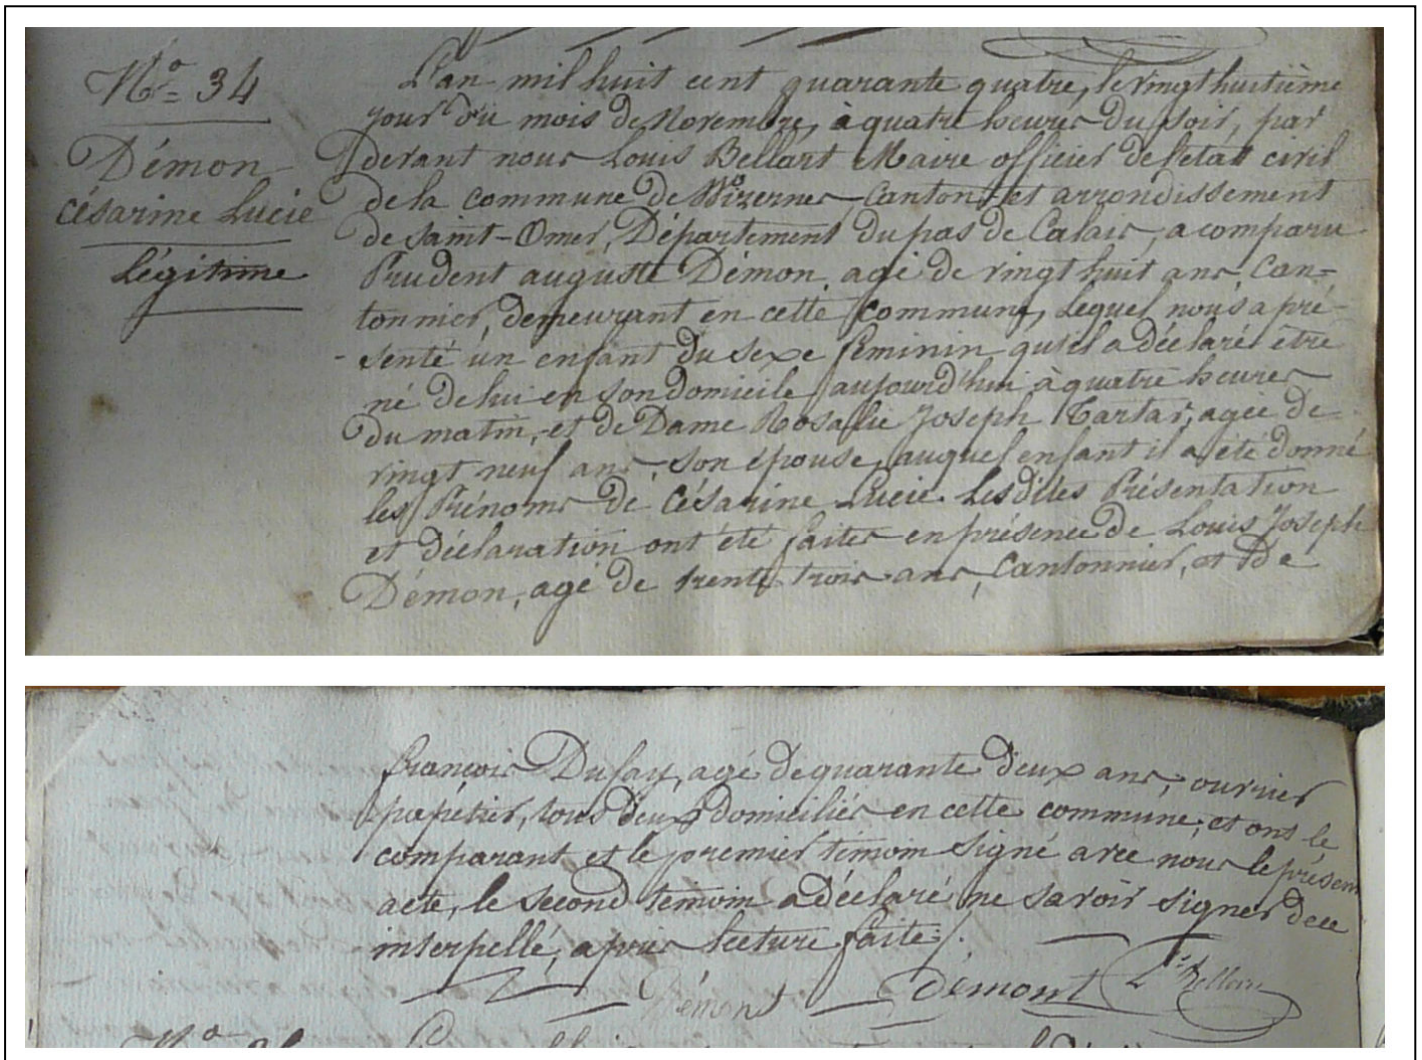 N.o 34
Démon
césarine Lucie
Légitime
L'an mil huit cent quarante quatre, le vingt huitième
jour du mois de Novembre, à quatre heures du soir, par
devant nous Louis Bellart Maire officier de l'etat civil
de la commune de Wizernes Canton et arrondissement
de saint-Omer, Département du pas de Calais, a comparu
Prudent auguste Démon, agé de vingt huit ans, Can=
tonnier, demeurant en cette commune, lequel nous a pré-
senté un enfant du sexe féminin qu'il a déclaré être
né de lui en son domicile aujourd'hui à quatre heures
du matin, et de Dame Rosalie Joseph Tartar, agée de
vingt neuf ans son épouse, auquel enfant il a été donné
les Prénoms de Césarine Lucie. Lesdites Présentation
et déclaration ont été faites en présence de Louis Joseph
Démon, agé de trente trois ans, Cantonnier, et de
françois Dufay, agé de quarante deux ans, ouvrier
papétier, tous deux domiciliés en cette commune; et ont le
comparant et le premier témoin signé avec nous le présent
acte, le second témoin a déclaré ne savoir signer de ce
interpellé, après lecture faite /.
Démont démont Ls Bellart